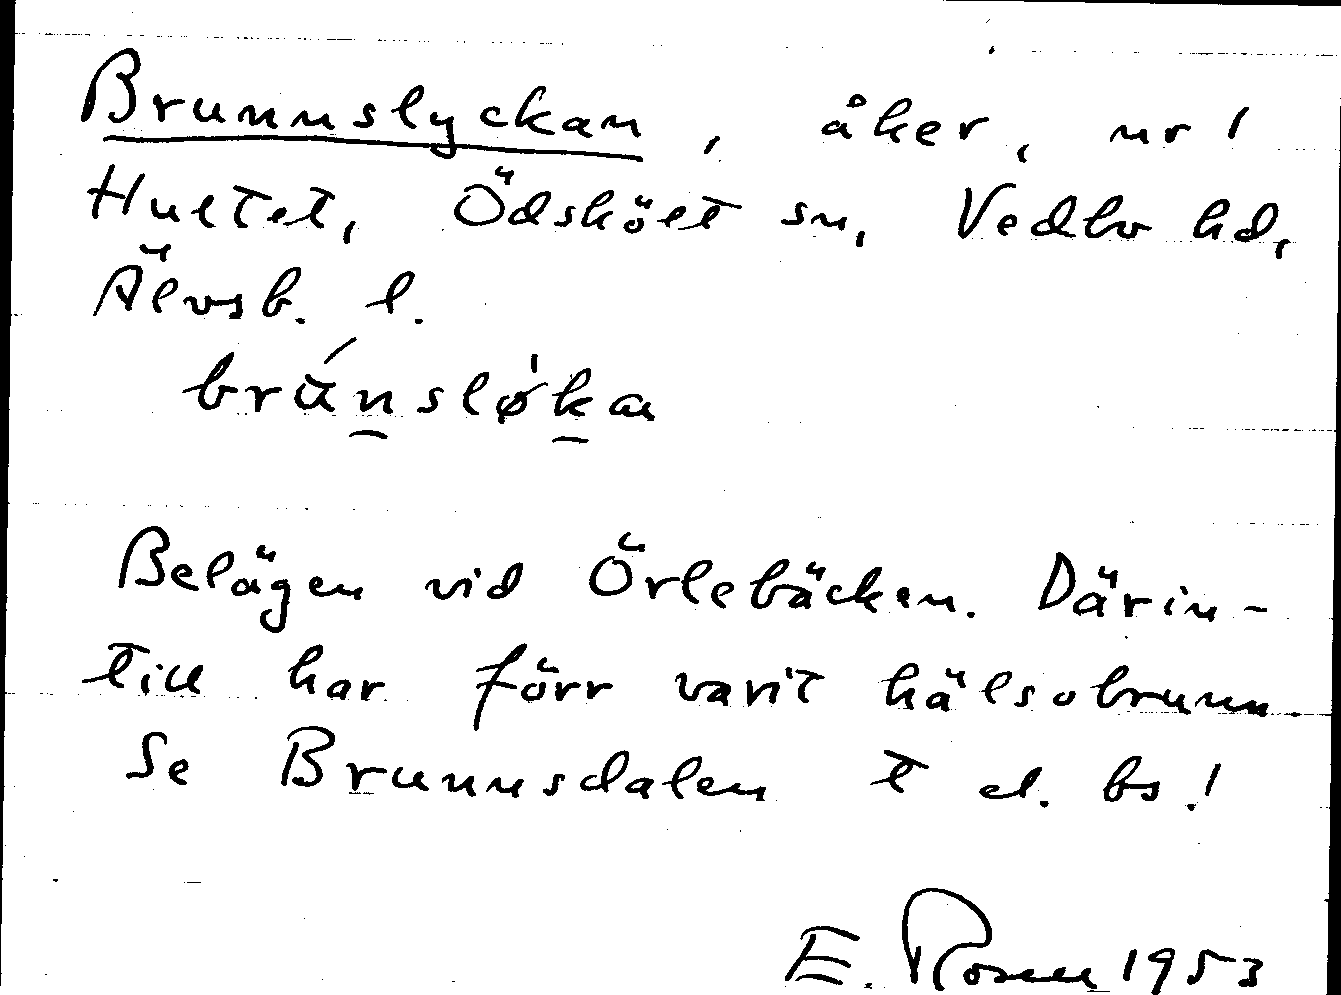 Brunnslyckan, åker, nr 1
Hultet, Ödsköлt sn, Vedbo hd,
Älvsb. l.
brúnsløka
Belägen vid Örlebäcken. Därin-
till har förr varit hälsobrunn.
Se Brunnsdalen t el. bs!
E. Rosen 1953